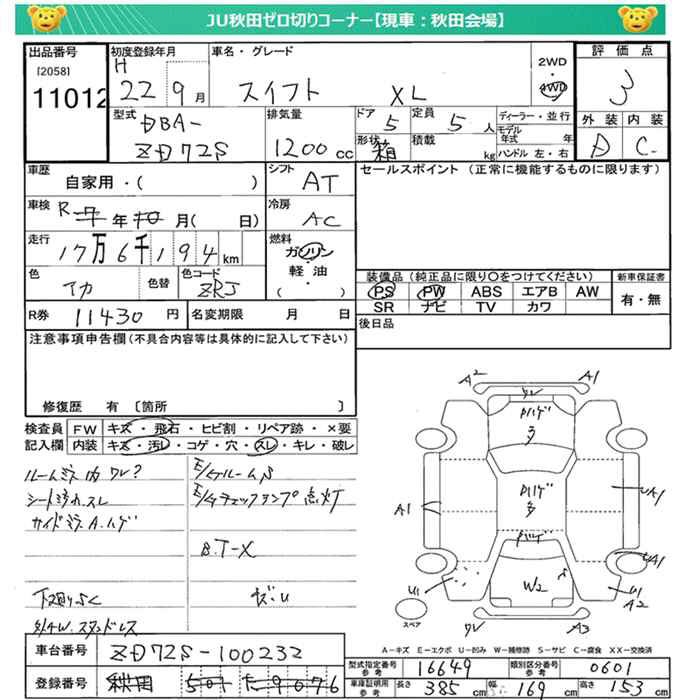 JU秋田ゼロ切りコーナー【現車：秋田会場】
出品番号
[2058]
11012
初度登録年月
H 22 9月
車名・グレード
スイフト XL
2WD
・
4WD
評価点
3
外装 内装
D C
型式
DBA-
ZD72S
排気量
1200 cc
ドア 5
定員 5 人
形状 箱
積載 kg
ディーラー・並行
モデル年式 年
ハンドル 左・右
車歴
自家用・( )
シフト AT
セールスポイント（正常に機能するものに限ります）
車検 R 年 月( 日)
冷房 AC
走行
17万6千194 km
燃料
ガソリン
・
軽油
・
( )
色 アカ
色替
色コード ZRJ
装備品（純正品に限り〇をつけてください）
PS PW ABS エアB AW
SR ナビ TV カワ
新車保証書
有・無
R券 11430 円
名変期限 月 日
後日品
注意事項申告欄（不具合内容等は具体的に記入して下さい）
修復歴 有 〔箇所 〕
検査員
記入欄
FW キズ・飛石・ヒビ割・リペア跡・×要
内装 キズ・汚レ・コゲ・穴・スレ・キレ・破レ
ルームミラー内ワレ?
シート汚れ.スレ
サイドミラーA.ハゲ
下廻りSC
外AW.スタッドレス
E/gルームS
E/gチェックランプ点灯
B.T-X
キズ.U
A2
A1
ワレ
ハゲ
多
ハゲ
多
ハゲ
A1
UA1
UA1
U1
U1
A2
W2
ワレ
A3
スペア
A－キズ E－エクボ U－凹み W－補修跡 S－サビ C－腐食 XX－交換済
車台番号 ZD72S-100232
登録番号 秋田 501 た 9076
型式指定番号 参考 16649
類別区分番号 参考 0601
車庫証明用 参考 長さ 385 cm 幅 169 cm 高さ 153 cm